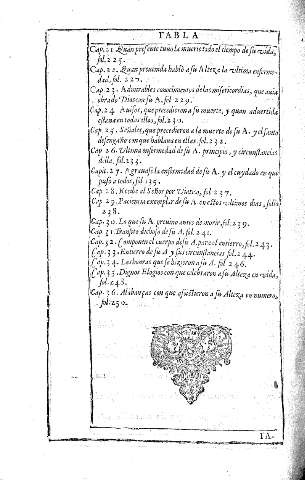 TABLA
Cap. 21. Quan presente tuvo la muerte todo el tiempo de su vida,
fol. 225.
Cap. 22. Quan prevenida halló a su Alteza la ultima enferme-
dad, fol. 227.
Cap. 23. Admirables conocimientos de las misericordias, que avia
obrado Dios con su A. fol. 229.
Cap. 24. Avisos, que precedieron a su muerte, y quan advertida
estava en todos ellos, fol. 230.
Cap. 25. Señales, que precedieron a la muerte de su A. y el santo
desengaño en que hablava en ellas. fol. 232.
Cap. 26. Ultima enfermedad de su A. principio, y circunstancias
della, fol. 233.
Capit. 27. Agravase la enfermedad de su A. y el cuydado en que
puso a todos, fol. 235.
Cap. 28. Recibe al Señor por Viatico, fol. 237.
Cap. 29. Paciencia exemplar de su A. en estos ultimos dias, folio
238.
Cap. 30. Lo que su A. previno antes de morir, fol. 239.
Cap. 31. Dichoso de su A. fol. 241.
Cap. 32. Componen el cuerpo de su A. para el entierro, fol. 243.
Cap. 33. Entierro de su A. y sus circunstancias fol. 244.
Cap. 34. Las honras que se hizieron a su A. fol. 246.
Cap. 35. Dignos Elogios con que celebraron a su Alteza en vida,
fol. 248.
Cap. 36. Alabanças con que a su Alteza un numero,
fol. 250.
TA-